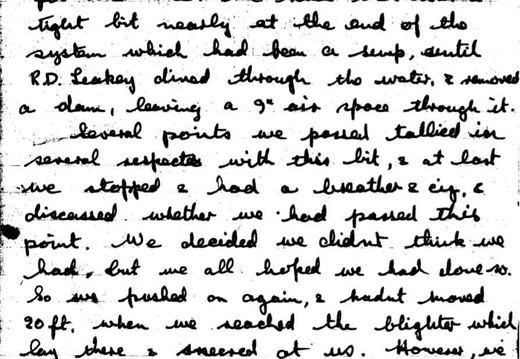 tight bit nearly at the end of the
system which had been a sump, until
R.D. Leakey dived through the water, & removed
a dam, leaving a 9" air space through it.
Several points we passed tallied in
several respects with this bit, & at last
we stopped & had a breather & cig, &
discussed whether we had passed this
point. We decided we didnt think we
had, but we all hoped we had done so.
So we pushed on again, & hadnt moved
20 ft, when we reached the blighter which
lay there & sneered at us. However, we